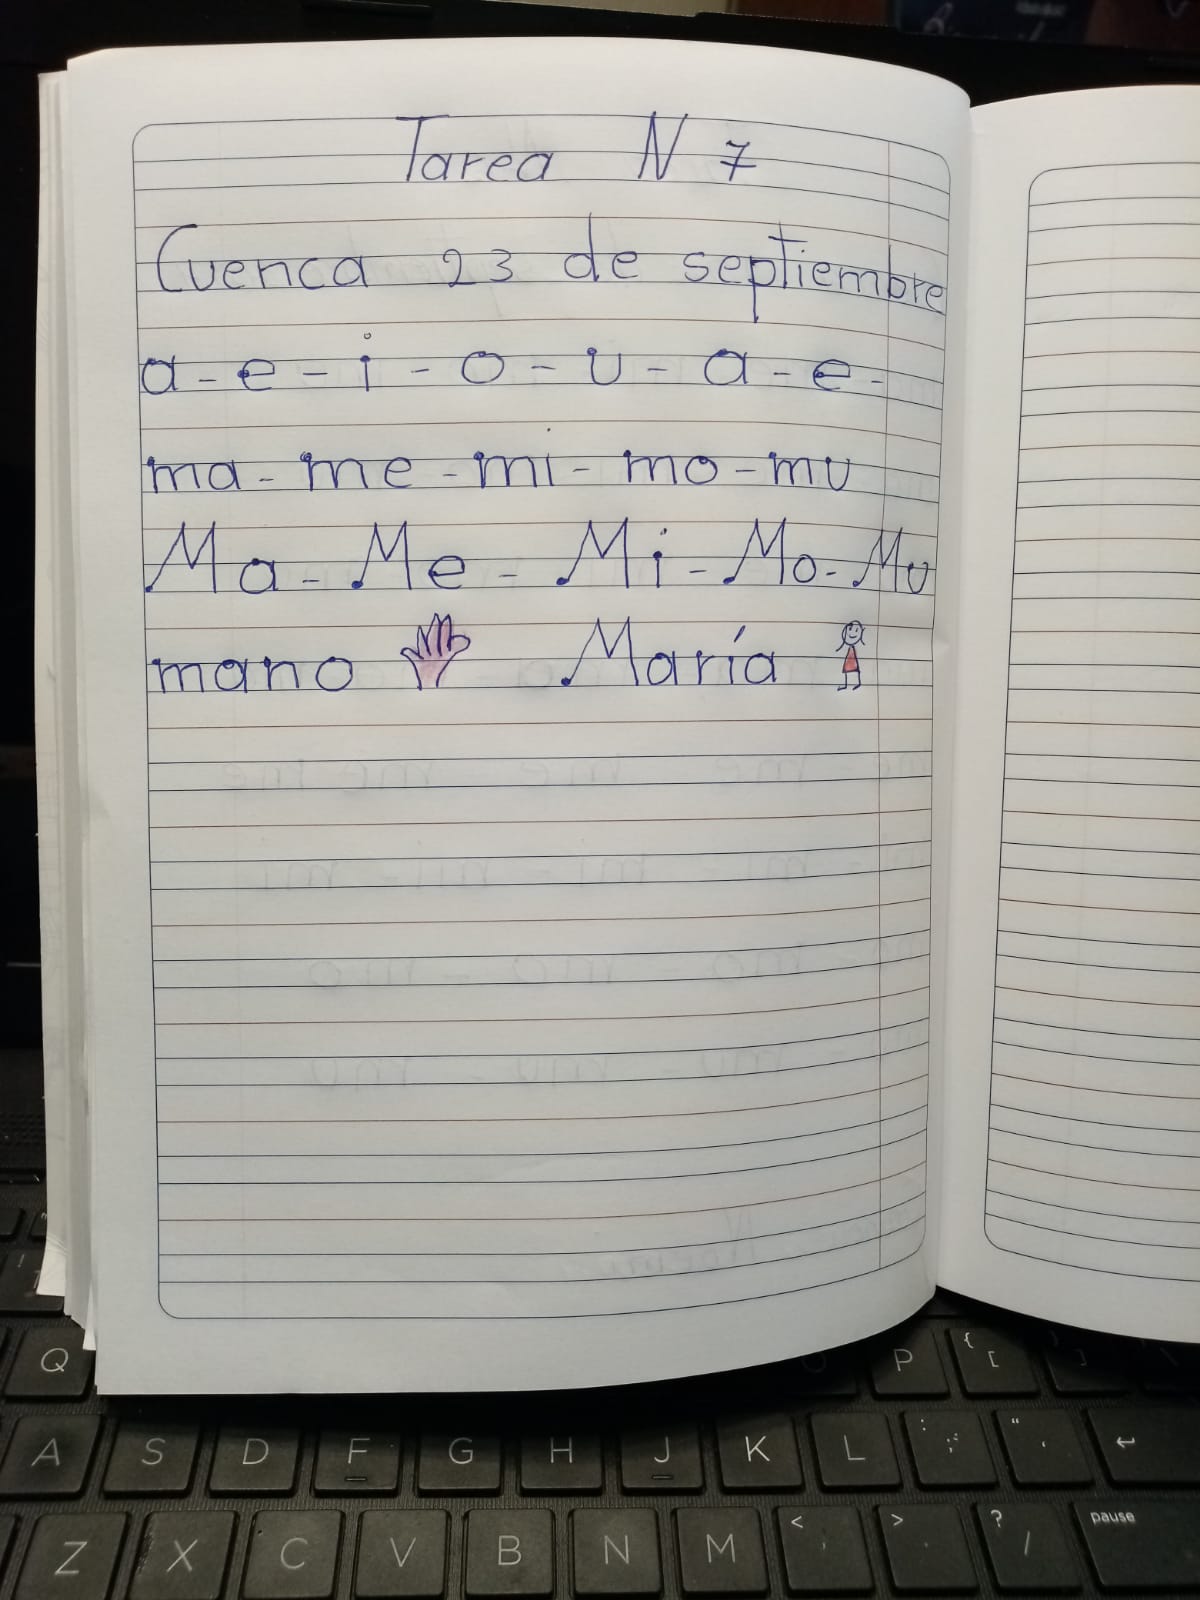 Tarea N 7
Cuenca 23 de septiembre
a - e - i - o - u - a - e -
ma - me - mi - mo - mu
Ma - Me - Mi - Mo - Mu
mano María
Q P { [
A S D F G H J K L : ; " ' ↵
Z X C V B N M < , > . ? / pause